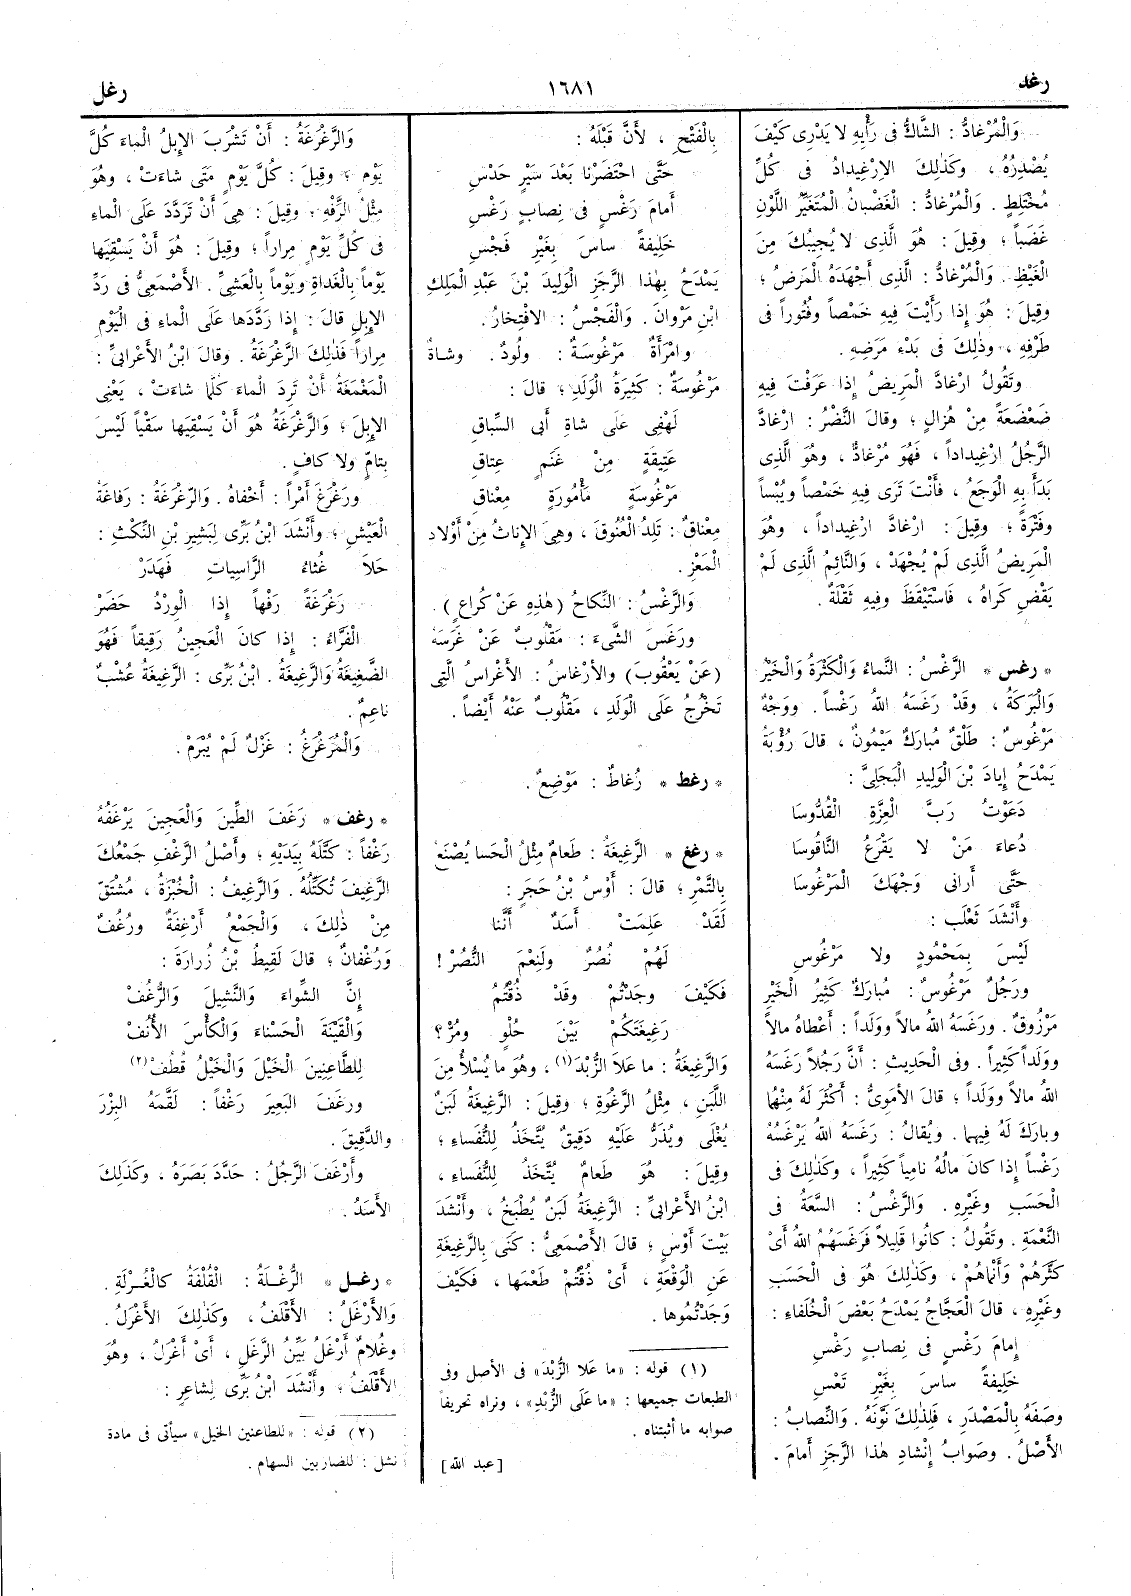 رغد
١٦٨١
رغل
وَالْمُرْغادُّ : الشَّاكُّ فى رَأْيِهِ لا يَدْرِى كَيْفَ
يُصْدِرُهُ ، وَكَذٰلِكَ الاِرْغِيدادُ فى كُلِّ
مُخْتَلِطٍ . وَالْمُرْغادُّ : الْغَضْبانُ الْمُتَغَيِّرُ اللَّوْنِ
غَضَباً ؛ وقِيلَ : هُوَ الَّذِى لا يُجِيبُكَ مِنَ
الْغَيْظِ . وَالْمُرْغادُّ : الَّذِى أَجْهَدَهُ الْمَرَضُ ؛
وقِيلَ : هُوَ إِذا رَأَيْتَ فِيهِ خَمْصاً وفُتُوراً فى
طَرْفِهِ ، وذٰلِكَ فى بَدْءِ مَرَضِهِ .
وتَقُولُ ارْغادَّ الْمَرِيضُ إِذا عَرَفْتَ فِيهِ
ضَعْضَعَةً مِنْ هُزالٍ ؛ وقالَ النَّضْرُ : ارْغادَّ
الرَّجُلُ ارْغِيداداً ، فَهُوَ مُرْغادٌّ ، وهُوَ الَّذِى
بَدَأَ بِهِ الْوَجَعُ ، فَأَنْتَ تَرَى فِيهِ خَمْصاً ويُبْساً
وفَتْرَةً ؛ وقِيلَ : ارْغادَّ ارْغِيداداً ، وهُوَ
الْمَرِيضُ الَّذِى لَمْ يُجْهَدْ ، وَالنَّائِمُ الَّذِى لَمْ
يَقْضِ كَراهُ ، فَاسْتَيْقَظَ وفِيهِ ثَقْلَةٌ .
* رغس * الرَّغْسُ : النَّماءُ وَالْكَثْرَةُ وَالْخَيْرُ
وَالْبَرَكَةُ ، وقَدْ رَغَسَهُ اللهُ رَغْساً . ووَجْهٌ
مَرْغُوسٌ : طَلْقٌ مُبارَكٌ مَيْمُونٌ ، قالَ رُؤْبَةُ
يَمْدَحُ إِيادَ بْنَ الْوَلِيدِ الْبَجَلِىَّ :
دَعَوْتُ رَبَّ الْعِزَّةِ الْقُدُّوسَا
دُعاءَ مَنْ لا يَقْرَعُ النَّاقُوسَا
حَتَّى أَرانِى وَجْهَكَ الْمَرْغُوسَا
وأَنْشَدَ ثَعْلَب :
لَيْسَ بِمَحْمُودٍ ولا مَرْغُوسِ
ورَجُلٌ مَرْغُوسٌ : مُبارَكٌ كَثِيرُ الْخَيْرِ
مَرْزُوقٌ . ورَغَسَهُ اللهُ مالاً ووَلَداً : أَعْطاهُ مالاً
ووَلَداً كَثِيراً . وفى الْحَدِيثِ : أَنَّ رَجُلاً رَغَسَهُ
اللهُ مالاً ووَلَداً ؛ قالَ الأُمَوِىُّ : أَكْثَرَ لَهُ مِنْهُما
وبارَكَ لَهُ فِيهِما . ويُقالُ : رَغَسَهُ اللهُ يَرْغَسُهُ
رَغْساً إِذا كانَ مالُهُ نامِياً كَثِيراً ، وكَذٰلِكَ فى
الْحَسَبِ وغَيْرِهِ . وَالرَّغْسُ : السَّعَةُ فى
النِّعْمَةِ . وتَقُولُ : كانُوا قَلِيلاً فَرَغَسَهُمُ اللهُ أَىْ
كَثَّرَهُمْ وأَنْماهُمْ ، وكَذٰلِكَ هُوَ فى الْحَسَبِ
وغَيْرِهِ ، قالَ الْعَجَّاجُ يَمْدَحُ بَعْضَ الْخُلَفاءِ :
إِمامَ رَغْسٍ فى نِصابِ رَغْسِ
خَلِيفَةً ساسَ بِغَيْرِ تَعْسِ
وصَفَهُ بِالْمَصْدَرِ ، فَلِذٰلِكَ نَوَّنَهُ . وَالنِّصابُ :
الأَصْلُ . وصَوابُ إِنْشادِ هٰذا الرَّجَزِ أَمامَ .
بِالْفَتْحِ ، لأَنَّ قَبْلَهُ :
حَتَّى احْتَضَرْنا بَعْدَ سَيْرٍ حَدْسِ
أَمامَ رَغْسٍ فى نِصابِ رَغْسِ
خَلِيفَةً ساسَ بِغَيْرِ فَجْسِ
يَمْدَحُ بِهٰذا الرَّجَزِ الْوَلِيدَ بْنَ عَبْدِ الْمَلِكِ
ابْنِ مَرْوانَ . وَالْفَجْسُ : الاِفْتِخارُ .
وامْرَأَةٌ مَرْغُوسَةٌ : وَلُودٌ . وشاةٌ
مَرْغُوسَةٌ : كَثِيرَةُ الْوَلَدِ ؛ قالَ :
لَهْفِى عَلَى شاةِ أَبِى السِّباقِ
عَتِيقَةٍ مِنْ غَنَمٍ عِتاقِ
مَرْغُوسَةٍ مَأْمُورَةٍ مِعْناقِ
مِعْناقٌ : تَلِدُ الْعُنُوقَ ، وهِىَ الإِناثُ مِنْ أَوْلادِ
الْمَعَزِ .
وَالرَّغْسُ : النِّكاحُ (هٰذِهِ عَنْ كُراعٍ) .
ورَغَسَ الشَّىءَ : مَقْلُوبٌ عَنْ غَرَسَهُ
(عَنْ يَعْقُوبَ) والأَرْغاسُ : الأَغْراسُ الَّتِى
تَخْرُجُ عَلَى الْوَلَدِ ، مَقْلُوبٌ عَنْهُ أَيْضاً .
* رغط * رُغاطٌ : مَوْضِعٌ .
* رغغ * الرَّغِيغَةُ : طَعامٌ مِثْلُ الْحَسا يُصْنَعُ
بِالتَّمْرِ ؛ قالَ : أَوْسُ بْنُ حَجَرٍ :
لَقَدْ عَلِمَتْ أَسَدٌ أَنَّنا
لَهُمْ نُصُرٌ ولَنِعْمَ النُّصُرْ !
فَكَيْفَ وجَدْتُمْ وقَدْ ذُقْتُمُ
رَغِيغَتَكُمْ بَيْنَ حُلْوٍ ومُرّْ ؟
وَالرَّغِيغَةُ : ما عَلاَ الزُّبْدَ (١) ، وهُوَ ما يُسْلأُ مِنَ
اللَّبَنِ ، مِثْلُ الرَّغْوَةِ ؛ وقِيلَ : الرَّغِيغَةُ لَبَنٌ
يُغْلَى ويُذَرُّ عَلَيْهِ دَقِيقٌ يُتَّخَذُ لِلنُّفَساءِ ؛
وقِيلَ : هُوَ طَعامٌ يُتَّخَذُ لِلنُّفَساءِ ،
ابْنُ الأَعْرابِىِّ : الرَّغِيغَةُ لَبَنٌ يُطْبَخُ ، وأَنْشَدَ
بَيْتَ أَوْسٍ ؛ قالَ الأَصْمَعِىُّ : كَنَى بِالرَّغِيغَةِ
عَنِ الْوَقْعَةِ ، أَىْ ذُقْتُمْ طَعْمَها ، فَكَيْفَ
وَجَدْتُمُوها .
(١) قوله : «ما عَلا الزُّبْدَ» فى الأصل وفى
الطبعات جميعها : «ما عَلَى الزُّبْدِ» ، ونراه تحريفاً
صوابه ما أثبتناه .
[عبد الله]
وَالرَّغْرَغَةُ : أَنْ تَشْرَبَ الإِبِلُ الْماءَ كُلَّ
يَوْمٍ ؛ وقِيلَ : كُلَّ يَوْمٍ مَتَى شاءَتْ ، وهُوَ
مِثْلُ الرِّفْهِ ؛ وقِيلَ : هِىَ أَنْ تَرَدَّدَ عَلَى الْماءِ
فى كُلِّ يَوْمٍ مِراراً ؛ وقِيلَ : هُوَ أَنْ يَسْقِيَها
يَوْماً بِالْغَداةِ ويَوْماً بِالْعَشِىِّ . الأَصْمَعِىُّ فى رَدِّ
الإِبِلِ قالَ : إِذا رَدَّدَها عَلَى الْماءِ فى الْيَوْمِ
مِراراً فَذٰلِكَ الرَّغْرَغَةُ . وقالَ ابْنُ الأَعْرابِىِّ :
الْمَغْمَغَةُ أَنْ تَرِدَ الْماءَ كُلَّما شاءَتْ ، يَعْنِى
الإِبِلَ ؛ وَالرَّغْرَغَةُ هُوَ أَنْ يَسْقِيَها سَقْياً لَيْسَ
بِتامٍّ ولا كافٍ .
ورَغْرَغَ أَمْراً : أَخْفاهُ . وَالرَّغْرَغَةُ : رَفاغَةُ
الْعَيْشِ ؛ وأَنْشَدَ ابْنُ بَرِّى لِبَشِيرِ بْنِ النِّكْثِ :
حَلاَ غُثاءَ الرَّاسِياتِ فَهَدَرْ
رَغْرَغَةً رَفْهاً إِذا الْوِرْدُ حَضَرْ
الْفَرَّاءُ : إِذا كانَ الْعَجِينُ رَقِيقاً فَهُوَ
الضَّغِيغَةُ وَالرَّغِيغَةُ . ابْنُ بَرِّى : الرَّغِيغَةُ عُشْبٌ
ناعِمٌ .
وَالْمُرَغْرَغُ : غَزْلٌ لَمْ يُبْرَمْ .
* رغف * رَغَفَ الطِّينَ وَالْعَجِينَ يَرْغَفُهُ
رَغْفاً : كَتَّلَهُ بِيَدَيْهِ ؛ وأَصْلُ الرَّغْفِ جَمْعُكَ
الرَّغِيفَ تُكَتِّلُهُ . وَالرَّغِيفُ : الْخُبْزَةُ ، مُشْتَقٌّ
مِنْ ذٰلِكَ ، وَالْجَمْعُ أَرْغِفَةٌ ورُغُفٌ
وَرُغْفانٌ ؛ قالَ لَقِيطُ بْنُ زُرارَةَ :
إِنَّ الشِّواءَ وَالنَّشِيلَ وَالرُّغُفْ
وَالْقَيْنَةَ الْحَسْناءَ وَالْكَأْسَ الأُنُفْ
لِلطَّاعِنِينَ الْخَيْلَ وَالْخَيْلُ قُطُفْ (٢)
ورَغَفَ الْبَعِيرَ رَغْفاً : لَقَّمَهُ الْبِزْرَ
والدَّقِيقَ .
وأَرْغَفَ الرَّجُلُ : حَدَّدَ بَصَرَهُ ، وكَذٰلِكَ
الأَسَدُ .
* رغل * الرُّغْلَةُ : الْقُلْفَةُ كالْغُرْلَةِ .
وَالأَرْغَلُ : الأَقْلَفُ ، وكَذٰلِكَ الأَغْرَلُ .
وغُلامٌ أَرْغَلُ بَيِّنُ الرَّغَلِ ، أَىْ أَغْرَلُ ، وهُوَ
الأَقْلَفُ ؛ وأَنْشَدَ ابْنُ بَرِّى لِشاعِرٍ :
(٢) قوله : «للطاعنين الخيل» سيأتى فى مادة
نشل : للضاربين السهام .